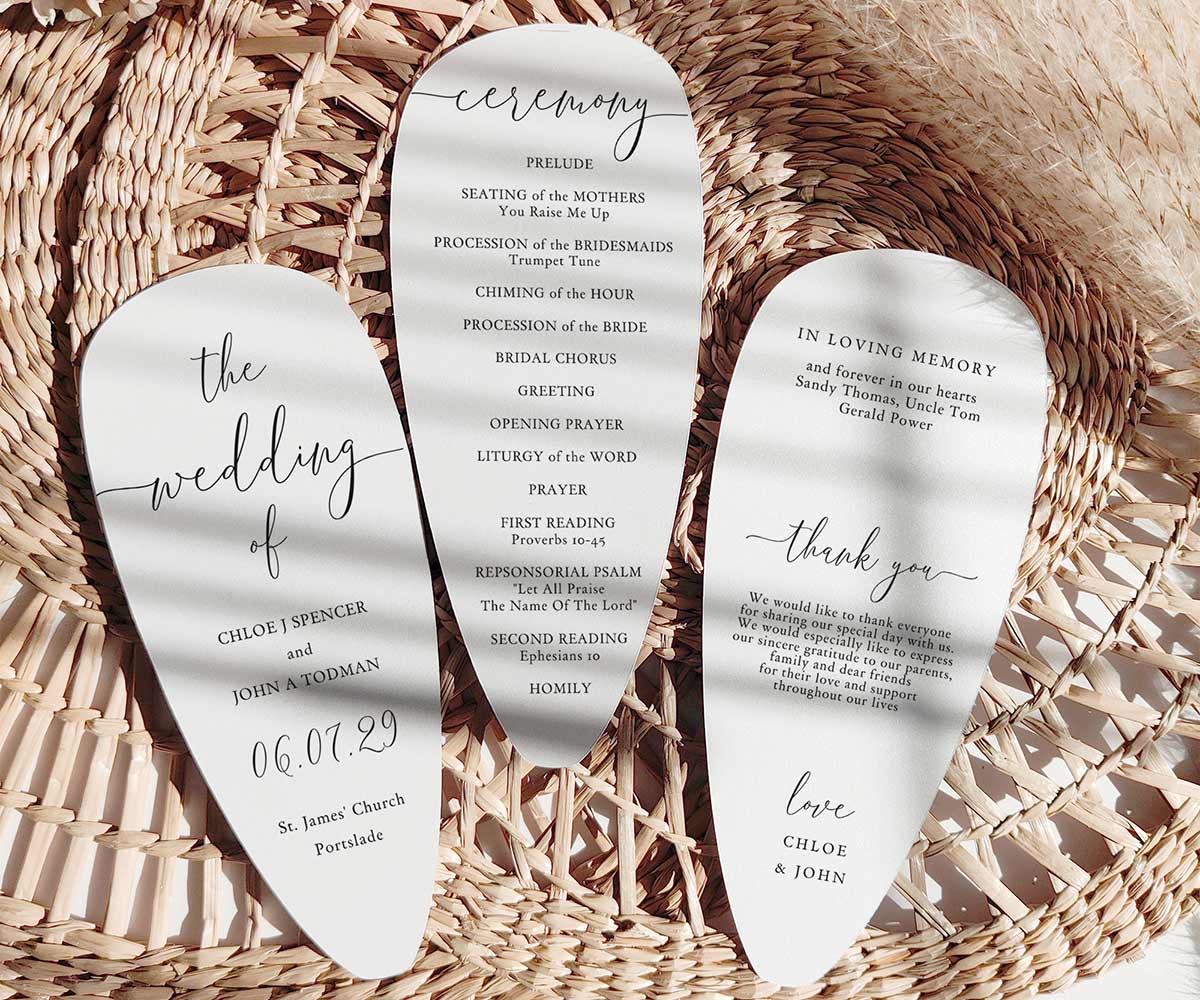 the
wedding
of
CHLOE J SPENCER
and
JOHN A TODMAN
06.07.29
St. James' Church
Portslade
ceremony
PRELUDE
SEATING of the MOTHERS
You Raise Me Up
PROCESSION of the BRIDESMAIDS
Trumpet Tune
CHIMING of the HOUR
PROCESSION of the BRIDE
BRIDAL CHORUS
GREETING
OPENING PRAYER
LITURGY of the WORD
PRAYER
FIRST READING
Proverbs 10-45
REPSONSORIAL PSALM
"Let All Praise
The Name Of The Lord"
SECOND READING
Ephesians 10
HOMILY
IN LOVING MEMORY
and forever in our hearts
Sandy Thomas, Uncle Tom
Gerald Power
thank you
We would like to thank everyone
for sharing our special day with us.
We would especially like to express
our sincere gratitude to our parents,
family and dear friends
for their love and support
throughout our lives
love
CHLOE
& JOHN